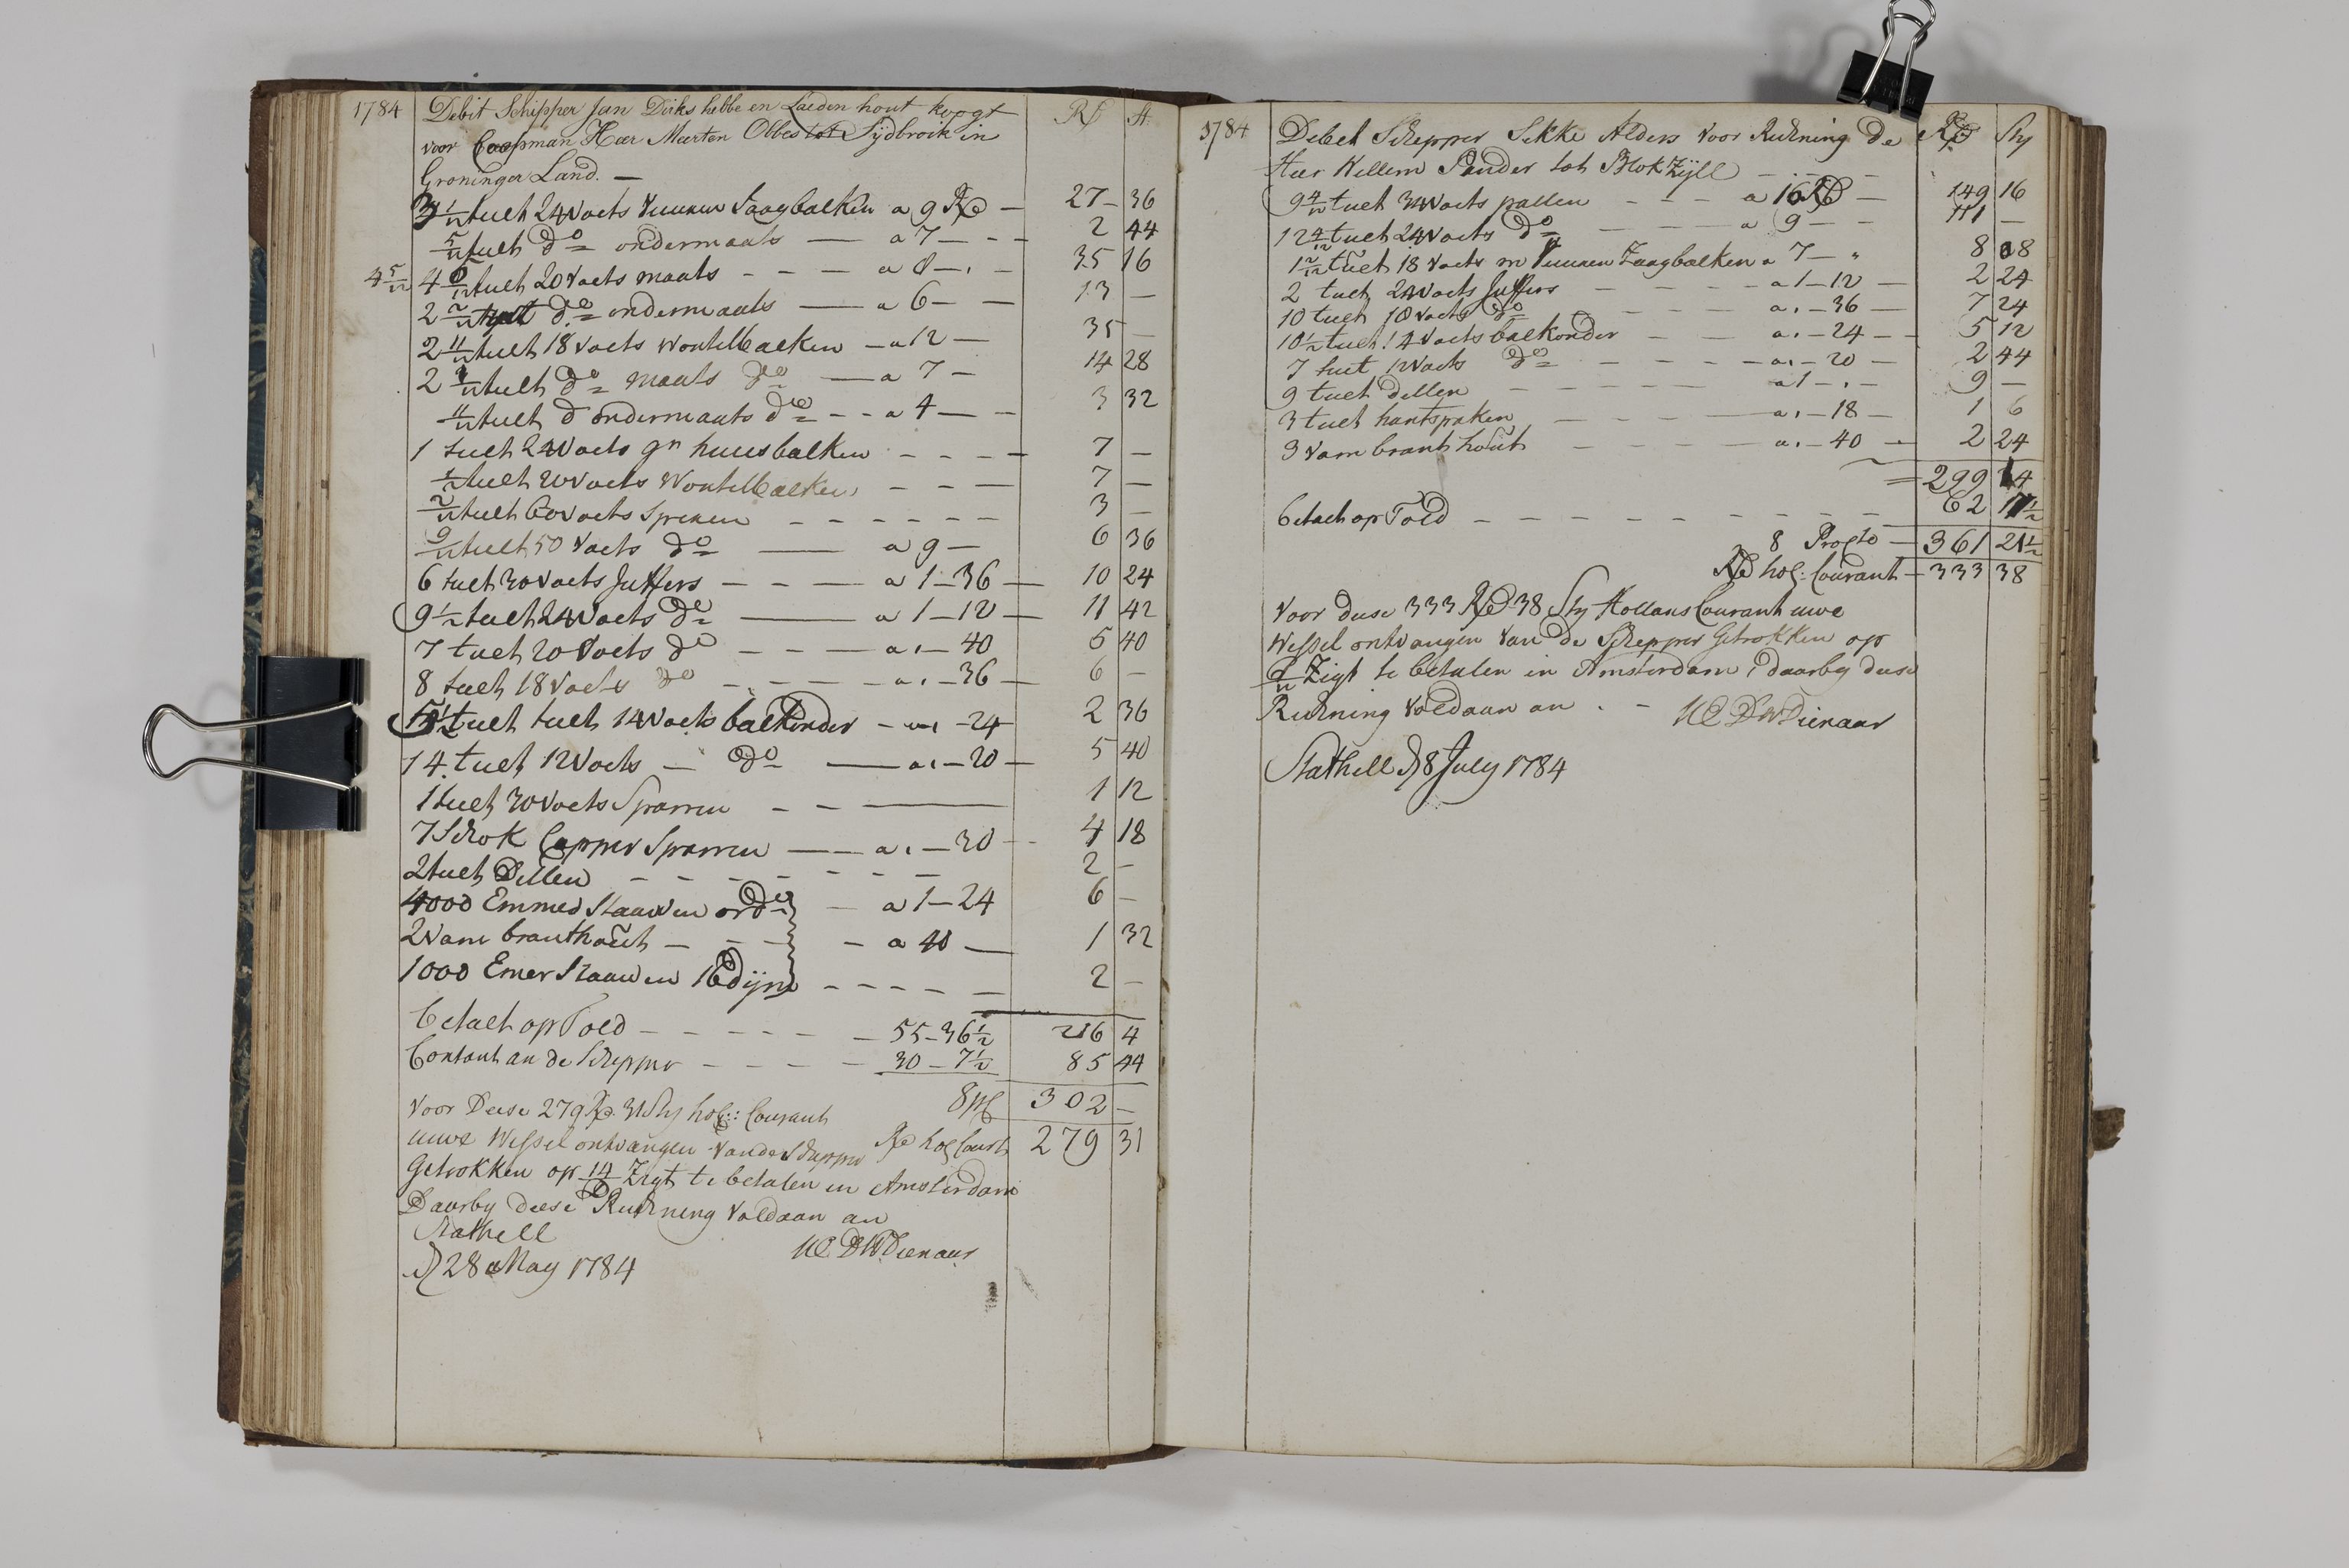 1784 Debit Schipper Jan Dirks hebbe en Laeden hout koogt R𝔡 St
voor Coopman Heer Marten Obbes tot Sijdbroik in
Groninger Land. —
3 1/12 tult 24 Voets Vuuren Saagbalken a 9 R𝔡 — 27 - 36
5/12 tult do ondermaats — a 7 — 2 44
4 5/12 4 5/12 tult 20 Voets maats - - - a 8 — 35 16
2 2/12 tult do ondermaats — a 6 — 13 —
2 11/12 tult 18 Voets wontelbalken — a 12 — 35 —
2 1/12 tult do maats do — a 7 — 14 28
11/12 tult d ondermaats do - - a 4 — 3 32
1 tult 24 Voets gn huusbalken - - - - 7 —
1/2 tult 20 Voets Wontelbalken - - - 7 —
2/12 tult 60 Voets Spieren - - - - - - 3 —
9/12 tult 50 Voets do — a 9 — 6 36
6 tult 30 Voets Juffers - - - a 1 - 36 — 10 24
9 1/2 tult 24 Voets do — a 1 - 12 — 11 42
7 tult 20 Voets do - - - a . - 40 5 40
8 tult 18 Voets do - - - a . - 36 — 6 —
tult tult 14 Voets balkonder - a . - 24 2 36
14 tult 12 Voets - do — a . - 20 — 5 40
1 tult 30 Voets Sparren - - — 1 12
7 Schok Capper Sparren — a . - 30 - - 4 18
2 tult Dellen - - - - - - 2 —
4000 Emmer Staaven ord — a 1 - 24 6 —
2 Vam branthout - - - - a 40 — 1 32
1000 Emer Staaven 16 dijm - - - - 2 —
betalt op Told - - - - 55 - 36 1/2 216 4
Contant an de Schepper - - - - 30 - 7 1/2 85 44
8 pC 302 —
Voor Deese 279 R𝔡 31 Sty hol:: Courant
uwe Wessel ontvangen van de Schepper R𝔡 hol Court 279 31
Getrokken op 14/D Zigt te betalen in Amsterdam
Daarby deese Rekning Voldaan an
Stathell
D 28 May 1784 UE DW Dienaar
1784 Debet Schepper Sikke Alders Voor Rekning de R𝔡 Sty
Heer Willem Sander tot Blokzijll
9 4/12 tult 34 Voets pallen - - - a 16 R𝔡 — 149 16
12 4/12 tult 24 Voets do - - - a 9 - - 111 —
1 2/12 tult 18 Voets m Vuuren Zaagbalken a 7 - 8 8
2 tult 24 Voets Juffers - - - a 1 - 12 — 2 24
10 tult 18 Voets do - - - a . - 36 — 7 24
10 1/2 tult 14 Voets balkonder - - a . - 24 - - 5 12
7 tult 12 Voets do - - - a . - 20 — 2 44
9 tult dellen - - - - - a 1 - . - 9 —
3 tult hantspaken - - - a . - 18 — 1 6
3 Vam branthout - - - a . - 40 - 2 24
299 14
betalt op Told - - - - - - - 62 7 1/2
8 Procto — 361 21 1/2
R𝔡 hol: Courant — 333 38
Voor duse 333 R𝔡 38 Sty Hollans Courant uwe
Wessel ontvangen van de Schepper Getrokken op
Zigt te betalen in Amsterdam, daarby duse
Rekning Voldaan an . - UE DW Dienaar
Stathell D 8 July 1784